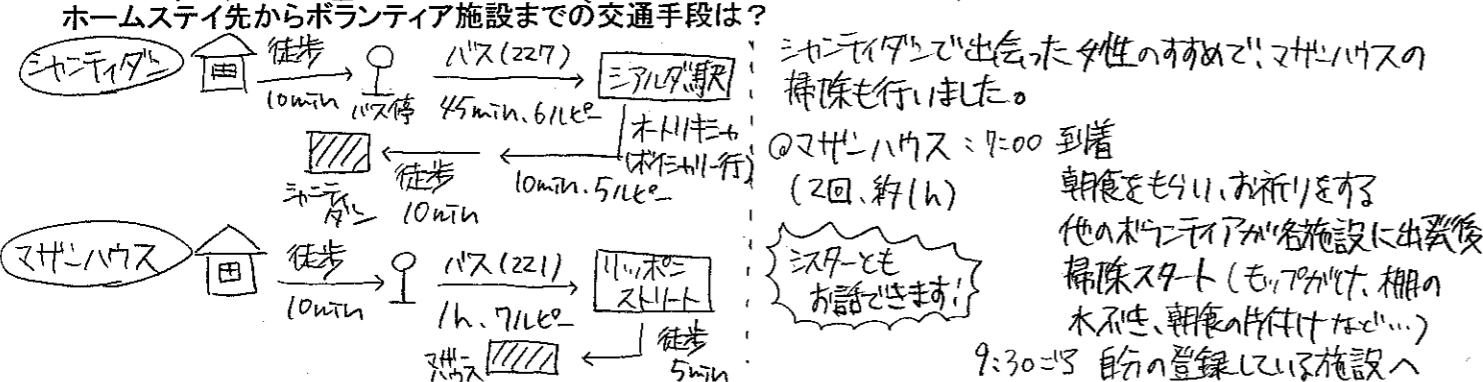 ホームステイ先からボランティア施設までの交通手段は？
シャンティダン
徒歩
10min
バス停
バス(227)
45min、6ルピー
シアルダ駅
オートリキシャ
10min、5ルピー
徒歩
10min
シャンティ
ダン
マザーハウス
徒歩
10min
バス(221)
1h、7ルピー
リッポン
ストリート
徒歩
5min
マザー
ハウス
シャンティダンで出会った女性のすすめで、マザーハウスの
掃除も行いました。
@マザーハウス：7:00 到着
(2回、約1h)
朝食をもらい、お祈りをする
他のボランティアが各施設に出発後
掃除スタート(モップがけ、棚の
水ぶき、朝食の片付けなど…)
9:30ごろ 自分の登録している施設へ
シスターとも
お話できます！